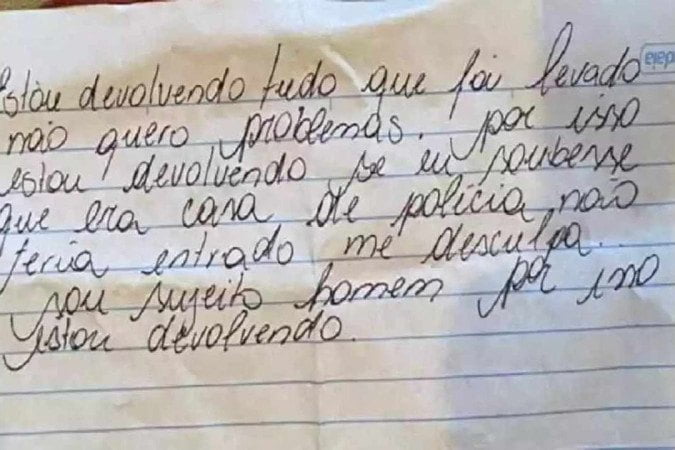 Estou devolvendo tudo que foi levado
não quero problemas. por isso
estou devolvendo, se eu soubesse
que era casa de polícia, não
teria entrado, me desculpa..
sou sujeito homem por isso
estou devolvendo.